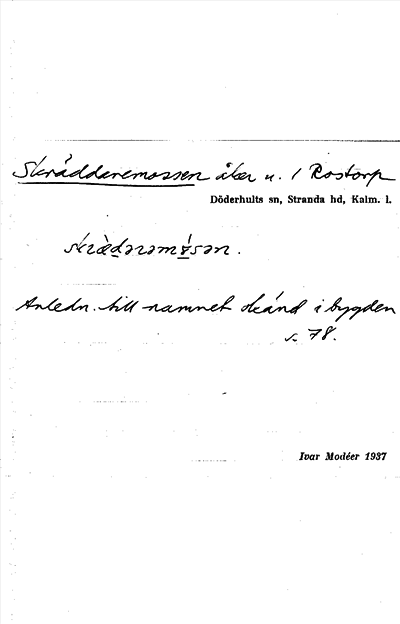 Skräddaremossen åker u. / Rostorp
Döderhults sn, Stranda hd, Kalm. l.
skrǽd̲ərəmɤ́sən.
Anledn. till namnet okänd i bygden
s. 78.
Ivar Modéer 1937